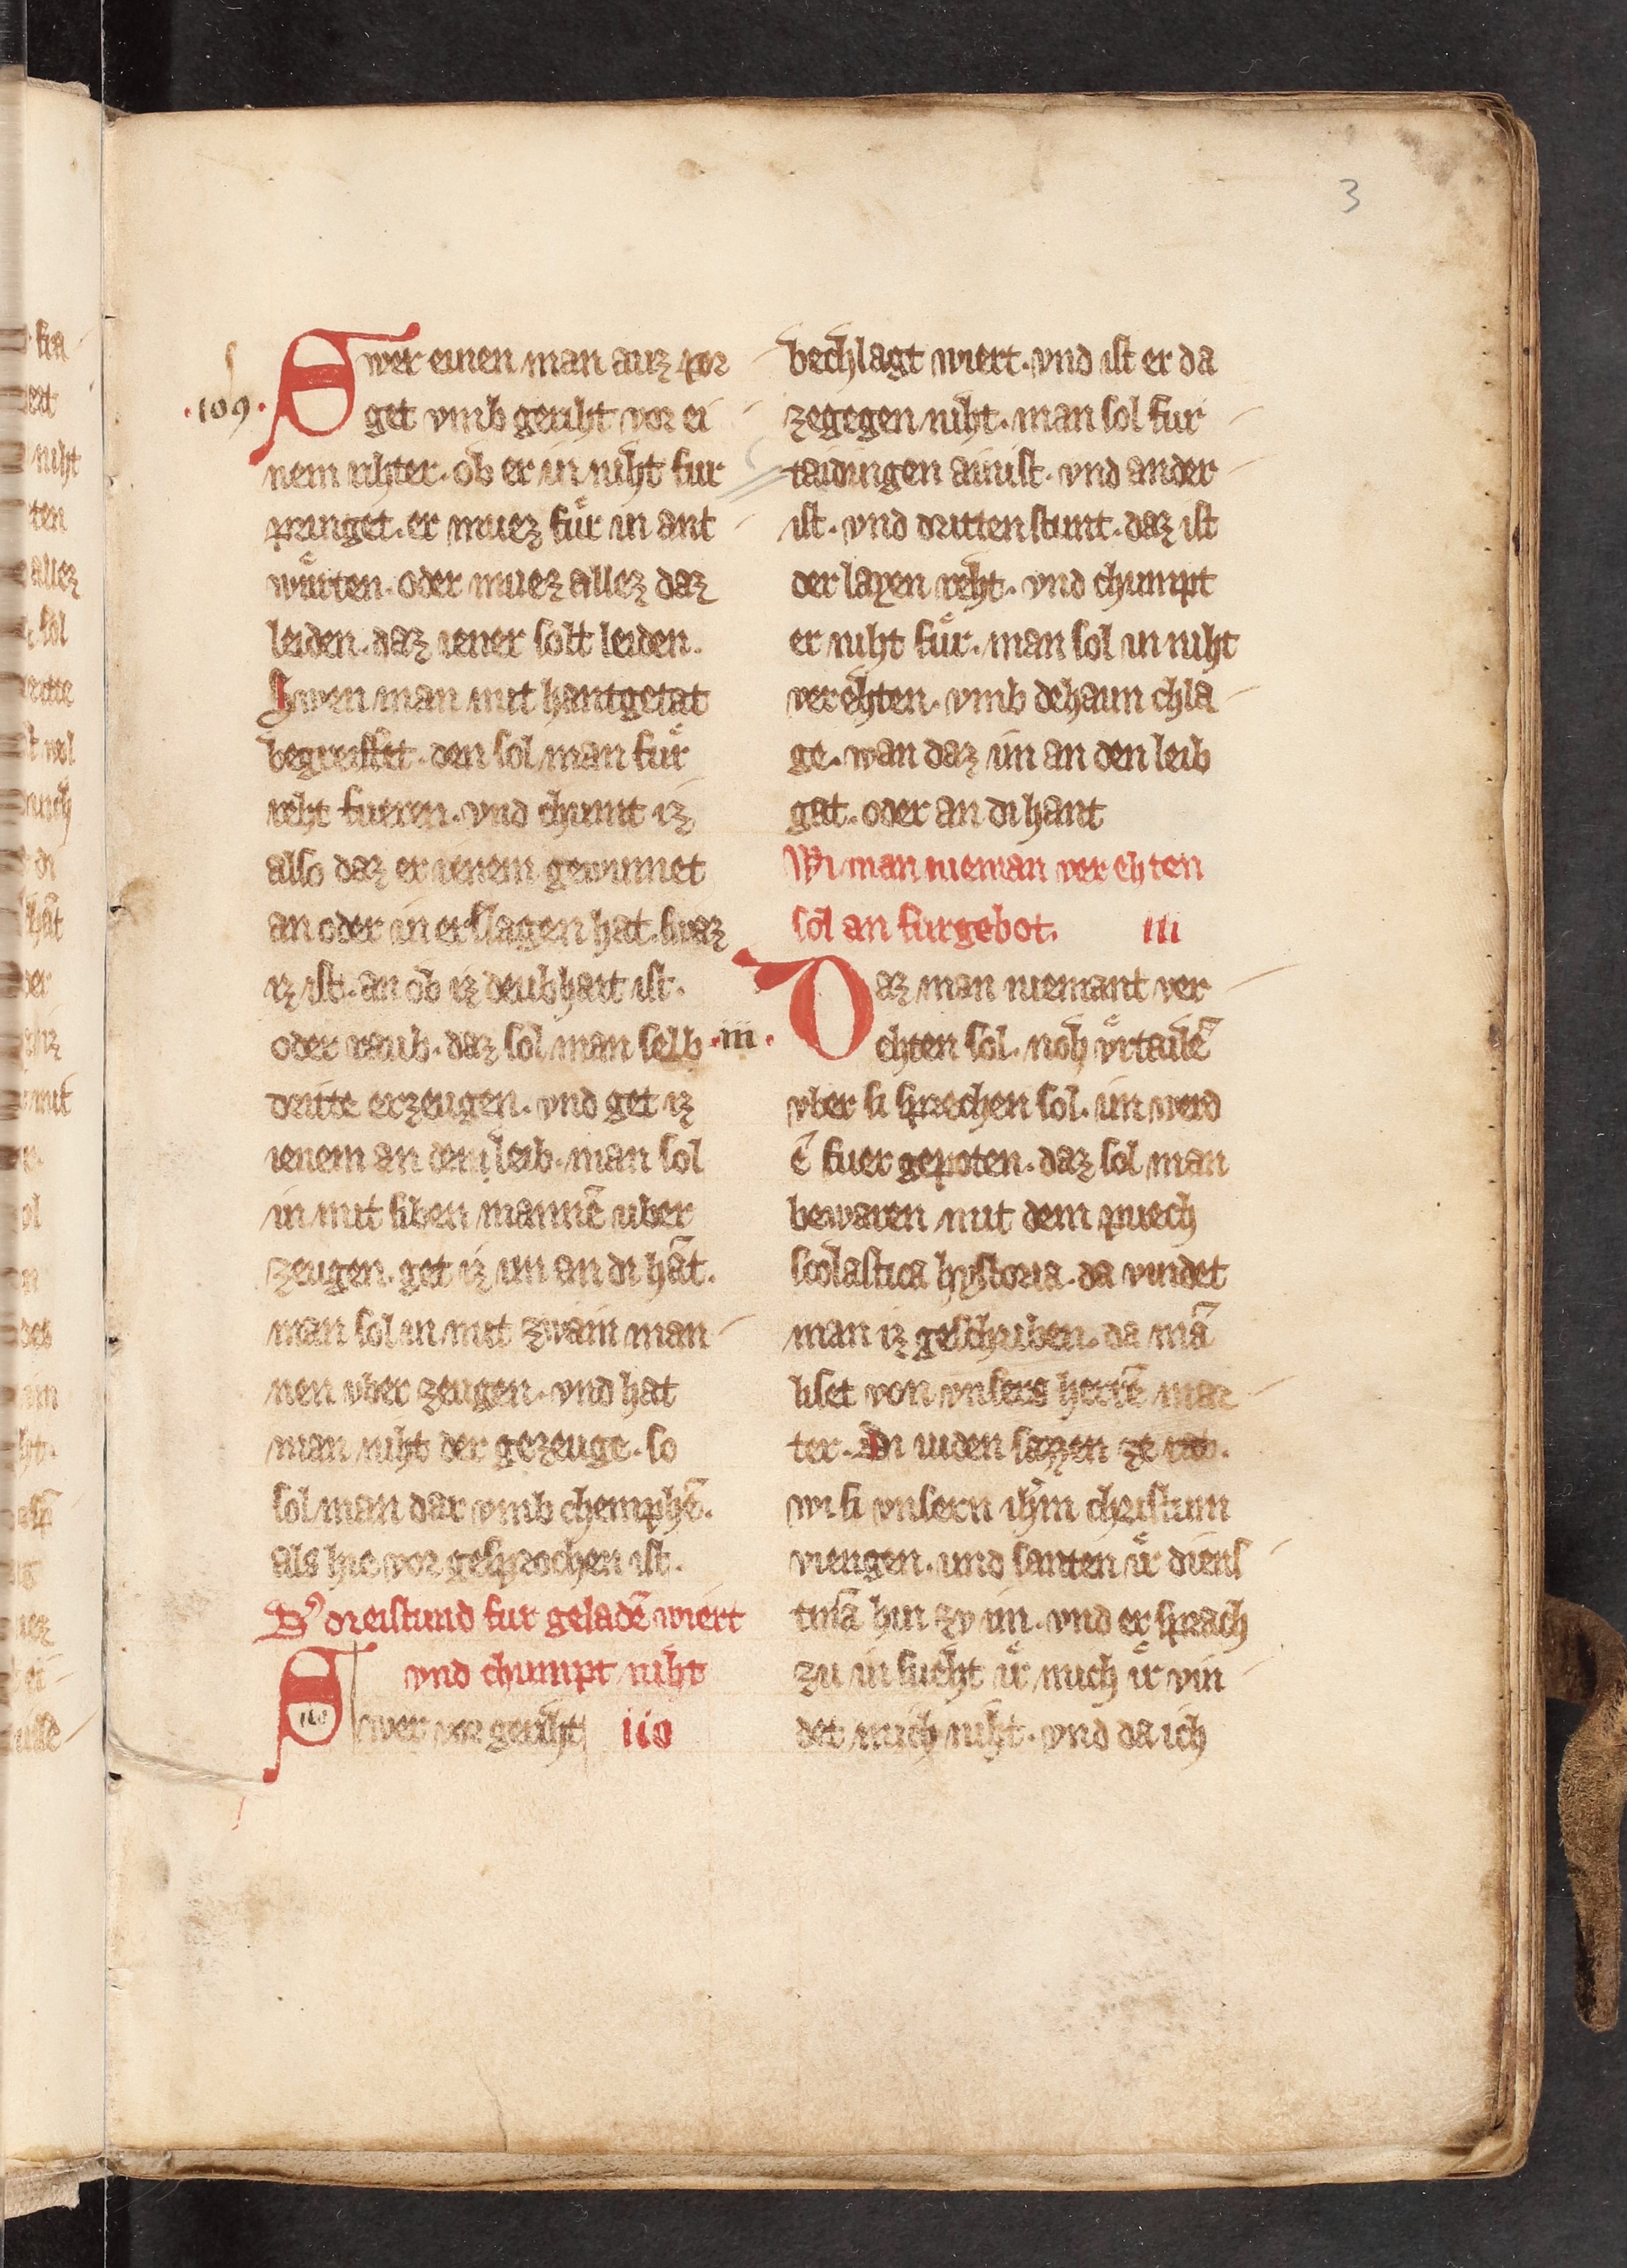 3
·109·
Swer einen man auz por
get vmb geriht vor ei
nem rihter· ob er in niht fur
pringet· er muez fuͤr in ant
wuͤrten· oder muez allez daz
leiden· daz iener solt leiden·
Swen man mit hantgetat
begreiffet· den sol man fuͤr
reht fueren· vnd chumt iz
also daz er ienem gewinnet
an oder in erslagen hat· swaz
iz ist· an ob iz deubhait ist·
oder raub· daz sol man selb
dritte erzeugen· vnd get iz
ienem an den leib· man sol
in mit siben mannē uber
zeugen· get iz im an di hāt·
man sol in mit zwain man
nen vber zeugen· vnd hat
man niht der gezeuge· so
sol man dar vmb chemphē·
als hie vor gesprochen ist·
Der dreistund fur geladē wiert
vnd chumpt niht
Swer vor geriht iio
bechlagt wiert· vnd ist er da
zegegen niht· man sol fur
taidingen ainist· vnd ander
ist· vnd dritten stunt· daz ist
der layen reht· vnd chumpt
er niht fuͤr· man sol in niht
verehten· vmb dehaun chla
ge· wan daz im an den leib
gat· oder an di hant
Wi man nieman ver ehten
sol an furgebot· iii
·iii·
Daz man niemant ver
chten sol· noh vͤrtailē
vber si sprechen sol· im werd
ē fuer gepoten· daz sol man
bewaren mit dem puech
scolastica hystoria· da vindet
man iz geschriben· da mā
liset von vnsers herrē mar
ter· Di iuden sazzen ze rat·
wi si vnsern ihm christum
viengen· und santen iͤr diens
tmā hin zv im· vnd er sprach
zu in sucht iͤr mich iͤr vin
det mich niht· vnd da ich